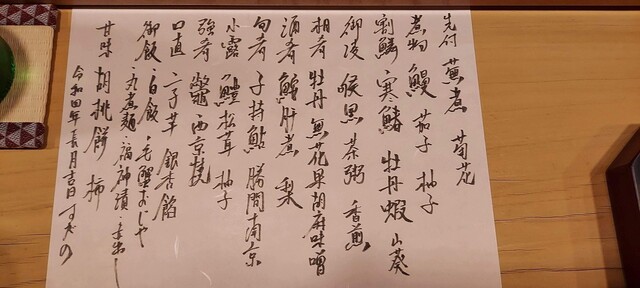 先付 蕪煮 菊花
煮物 鰻 茄子 柚子
割鱗 寒鰆 牡丹蝦 山葵
御凌 喉黒 茶粥 香煎
相肴 牡丹 無花果胡麻味噌
酒肴 鮟肝煮 梨
旬肴 子持鮎 勝間南京
小露 鱧松茸 柚子
強肴 鼈 西京焼
口直 二子芋 銀杏餡
御飯 ・白飯 ・毛蟹おじや
・丸煮麺 ・福神漬 ・
甘味 胡桃餅 柿
令和四年長月吉日